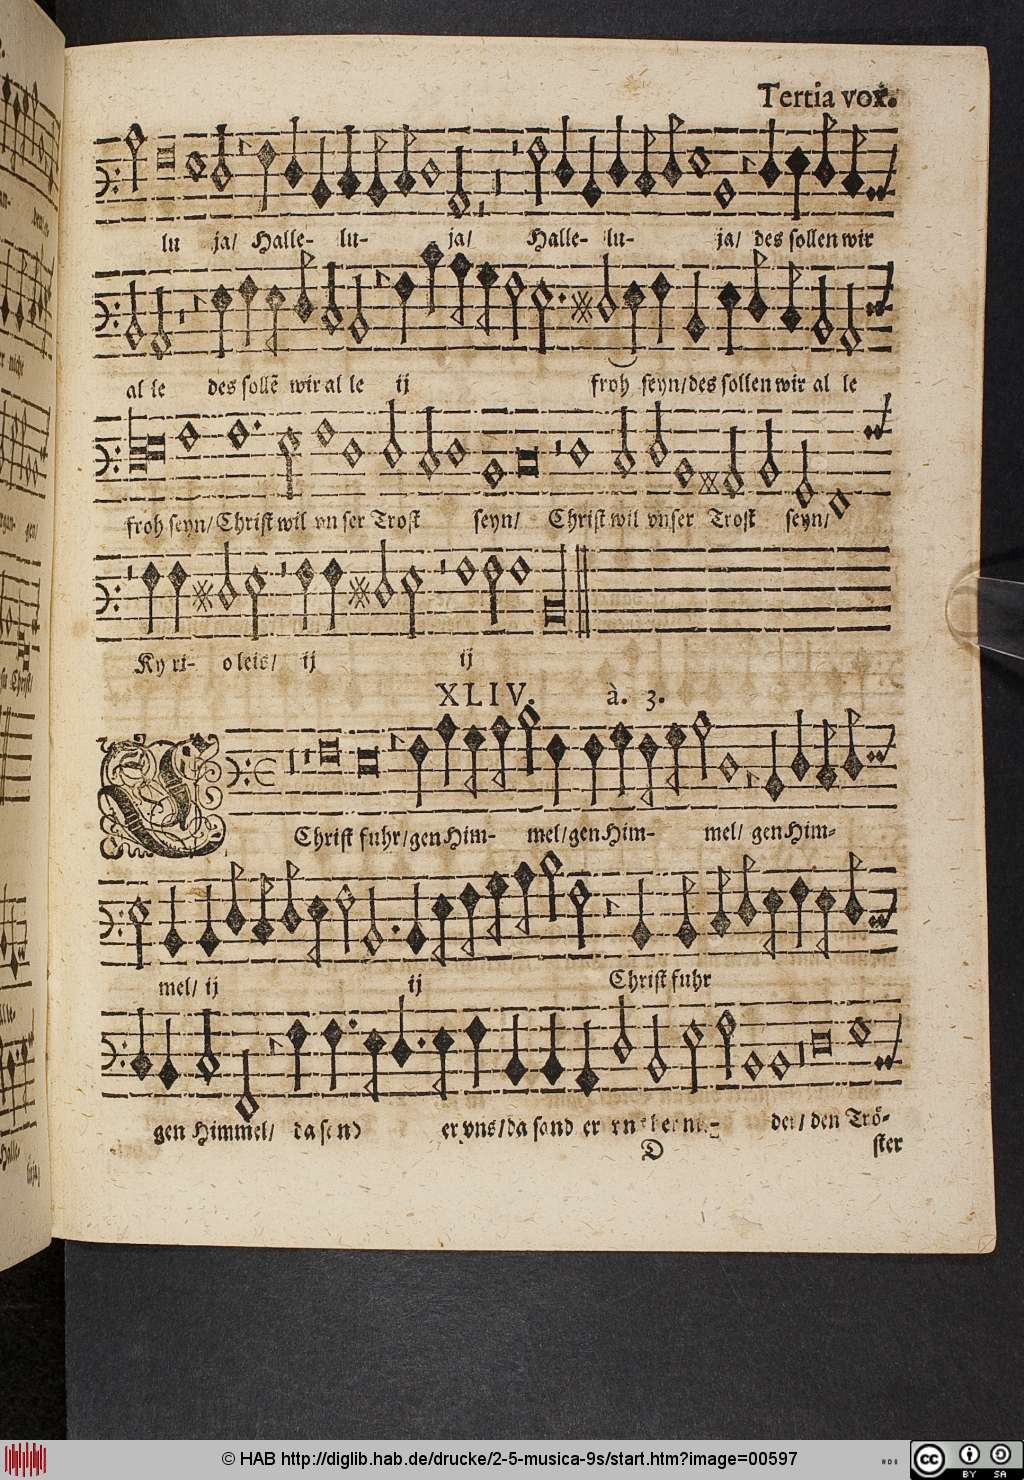 Tertia vox.
lu ja/ Halle- lu- ja/ Halle- lu- ja/ des sollen wir
al le des sollē wir al le ij froh seyn/ des sollen wir al le
froh seyn/ Christ wil vnser Trost seyn/ Christ wil vnser Trost seyn/
Ky ri- o leis/ ij ij
XLIV. à. 3.
Christ fuhr/ gen Him- mel/ gen Him- mel/ gen Him-
mel/ ij ij Christ fuhr
gen Himmel/ da er vns/ da sand er der/ den Trö-
D ster
© HAB http://diglib.hab.de/drucke/2-5-musica-9s/start.htm?image=00597
cc BY SA